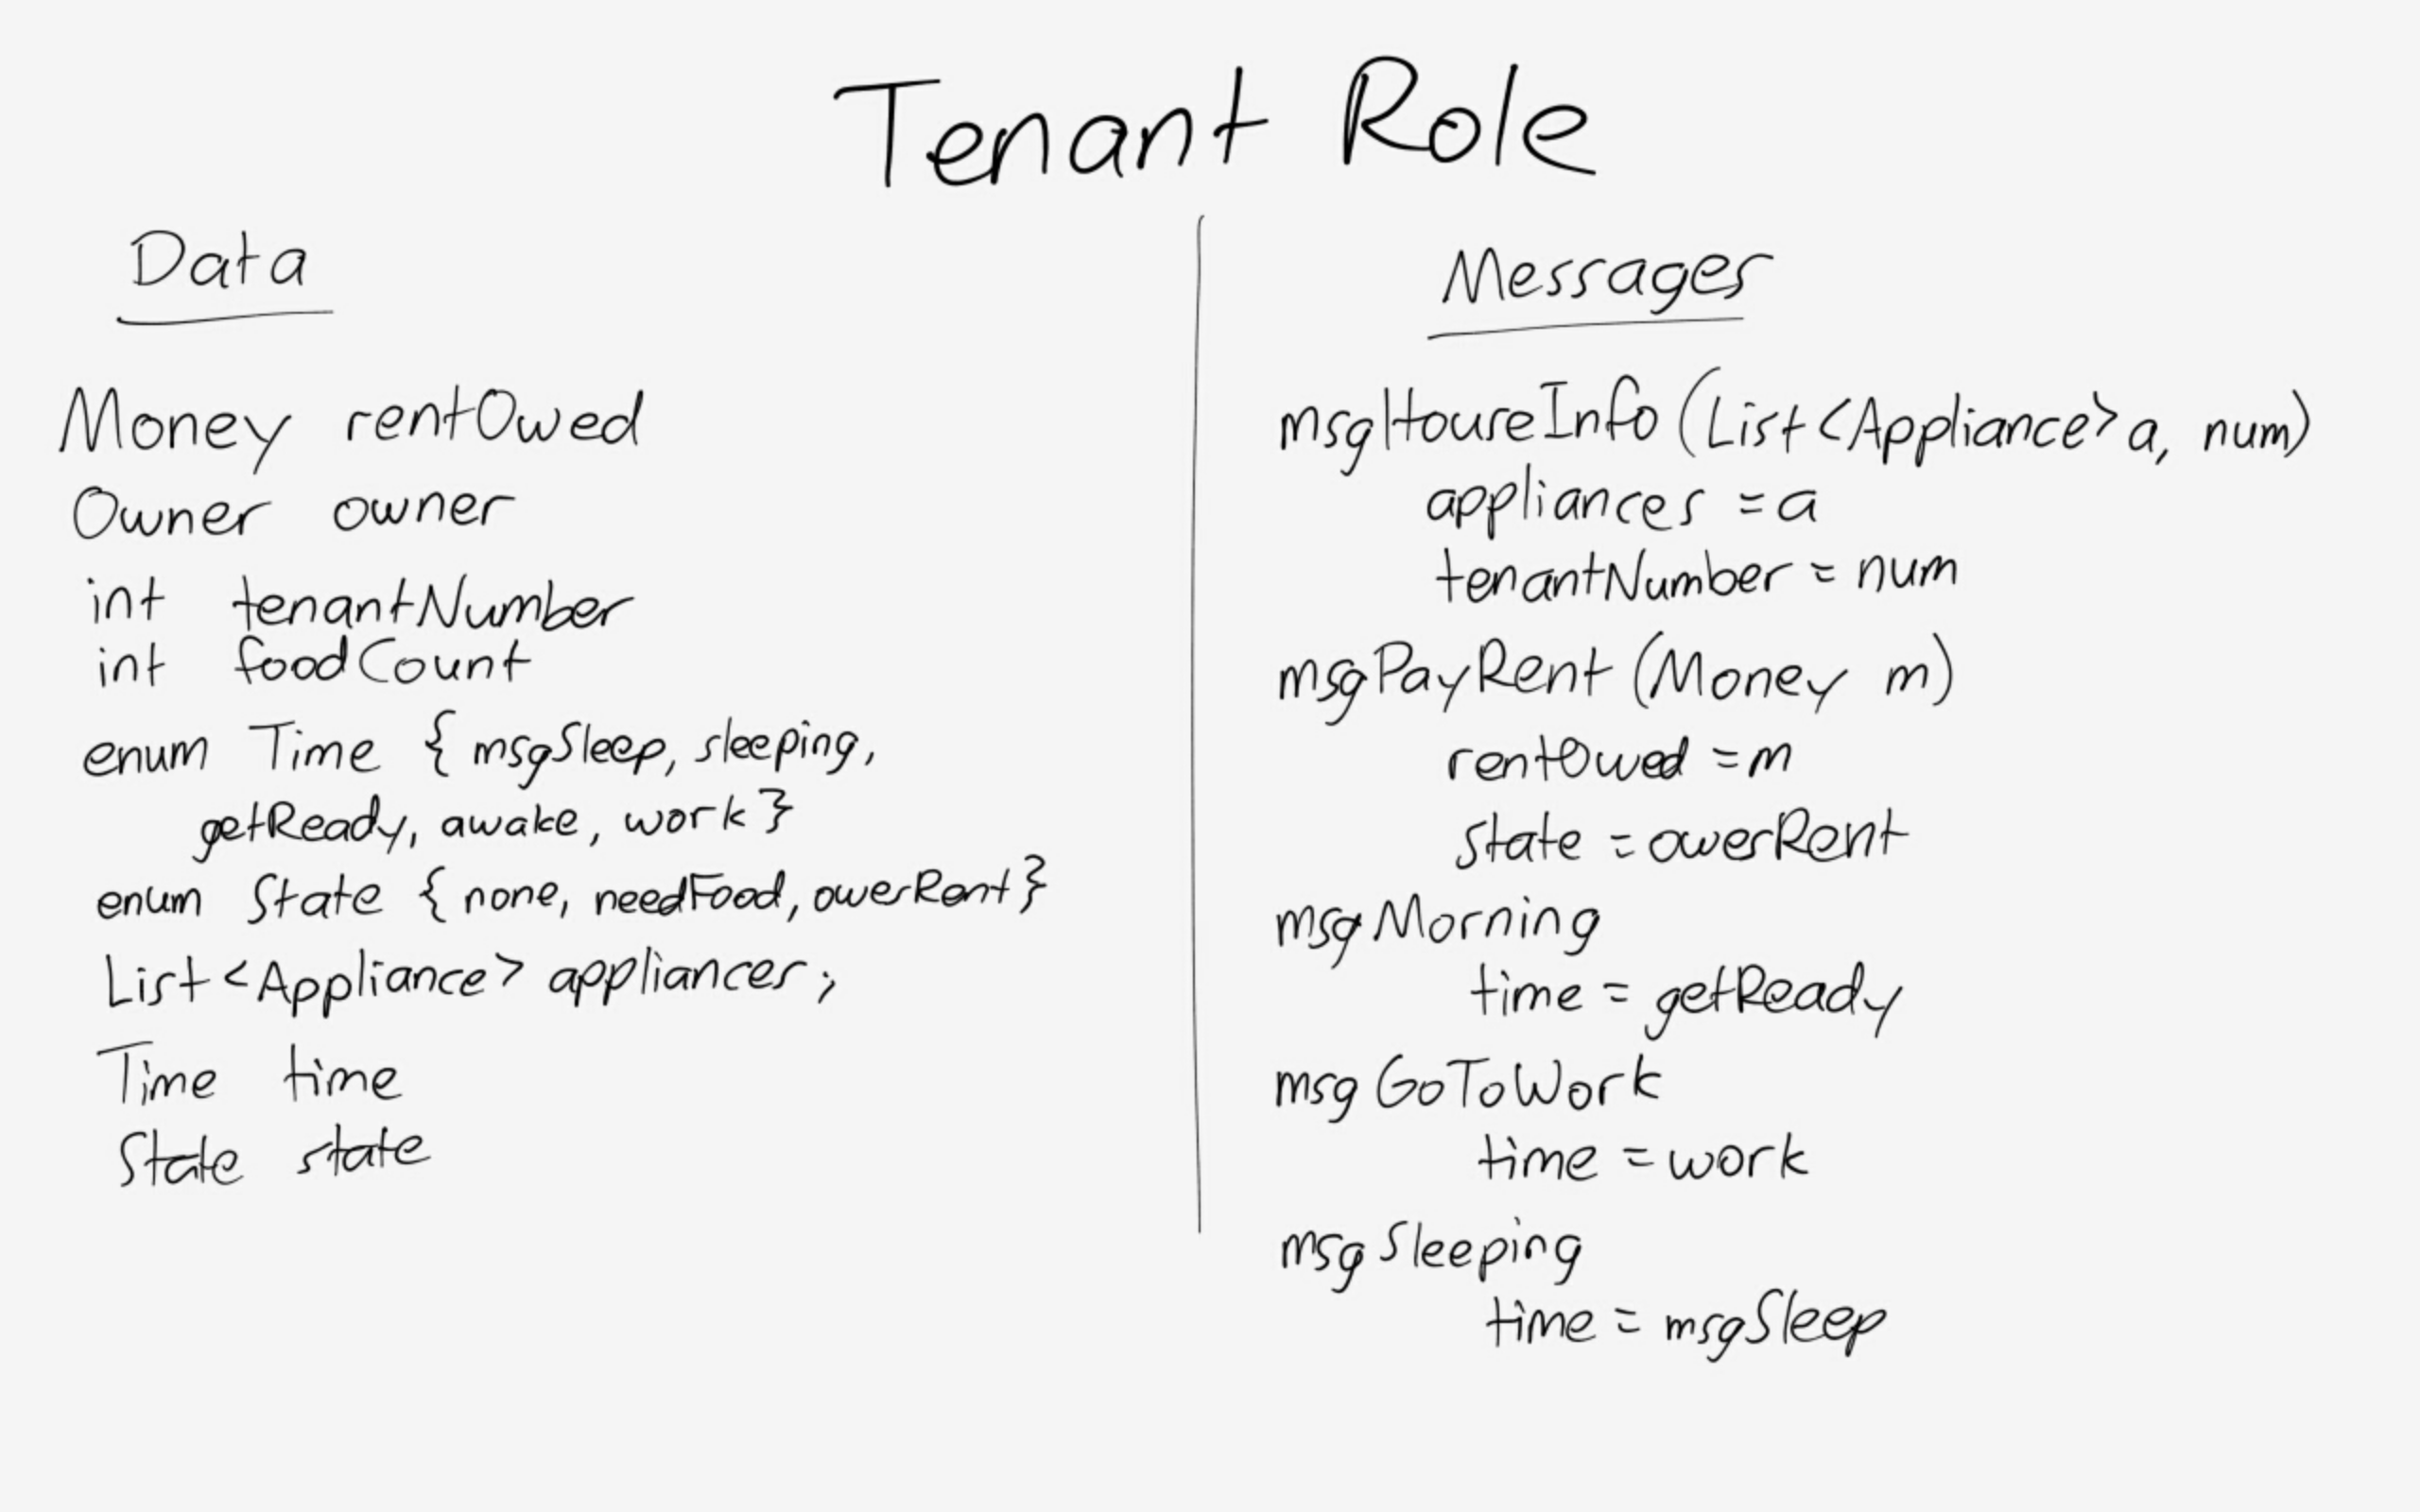 Tenant Role
Data
Money rentOwed
Owner owner
int tenantNumber
int foodCount
enum Time { msgSleep, sleeping,
getReady, awake, work }
enum State { none, needFood, owesRent }
List <Appliance> appliances;
Time time
State state
Messages
msgHouseInfo (List <Appliance> a, num)
appliances = a
tenantNumber = num
msgPayRent (Money m)
rentOwed = m
state = owesRent
msgMorning
time = getReady
msgGoToWork
time = work
msgSleeping
time = msgSleep